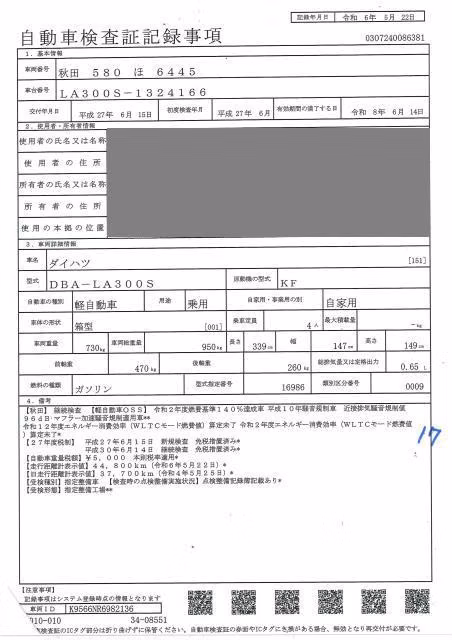 記録年月日 令和 6年 5月 22日
自動車検査証記録事項
0307240086381
1. 基本情報
車両番号 秋田 580 ほ 6445
車台番号 LA300S-1324166
交付年月日 平成 27年 6月 15日 初度検査年月 平成 27年 6月 有効期間の満了する日 令和 8年 6月 14日
2. 使用者・所有者情報
使用者の氏名又は名称
使用者の住所
所有者の氏名又は名称
所有者の住所
使用の本拠の位置
3. 車両詳細情報
車名 ダイハツ [151]
型式 DBA-LA300S 原動機の型式 KF
自動車の種別 軽自動車 用途 乗用 自家用・事業用の別 自家用
車体の形状 箱型 [001] 乗車定員 4人 最大積載量 -kg
車両重量 730kg 車両総重量 950kg 長さ 339cm 幅 147cm 高さ 149cm
前軸重 470kg 後軸重 260kg 総排気量又は定格出力 0.65 L
燃料の種類 ガソリン 型式指定番号 16986 類別区分番号 0009
4. 備考
【秋田】 継続検査 【軽自動車OSS】 令和2年度燃費基準140%達成車 平成10年騒音規制車 近接排気騒音規制値
96dB マフラー加速騒音規制適用車**
令和12年度エネルギー消費効率(WLTCモード燃費値)算定未了 令和2年度エネルギー消費効率(WLTCモード燃費値
)算定未了*
【27年度税制】 平成27年6月15日 新規検査 免税措置済み*
平成30年6月14日 継続検査 免税措置済み*
【自動車重量税額】¥5,000 本則税率適用*
【走行距離計表示値】44,800km(令和6年5月22日)*
【旧走行距離計表示値】37,700km(令和4年5月25日)*
【受検種別】指定整備車 【検査時の点検整備実施状況】点検整備記録簿記載あり*
【受検形態】指定整備工場**
17
【注意事項】
記録事項はシステム登録時点の情報となります
車両ID K9566NR6982136
010-010 34-08551
車検査証のICタグ部分は折り曲げずに保管ください。自動車検査証の券面やICタグに毀損がある場合、無効となり再交付が必要です。